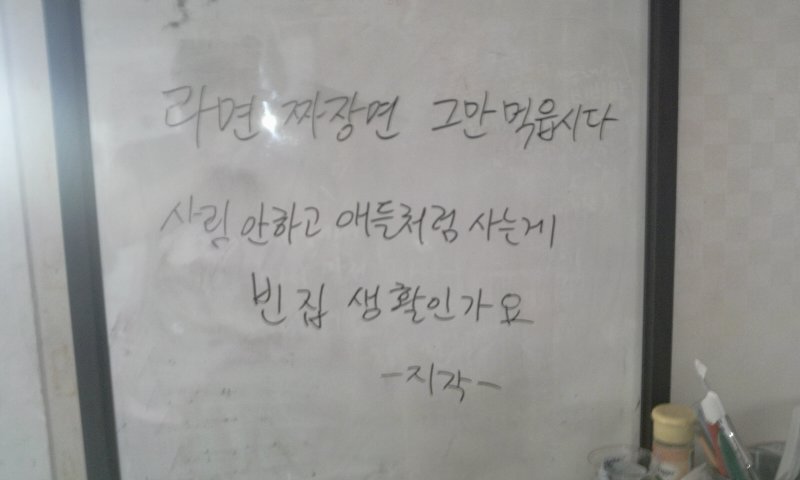 라면 짜장면 그만 먹읍시다
사림 안하고 애들처럼 사는게
빈집 생활인가요
-지각-